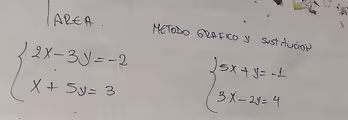 TAREA.
METODO GRAFICO y sustitución
2x-3y=-2
x+5y=3
5x+y=-1
3x-2y=4